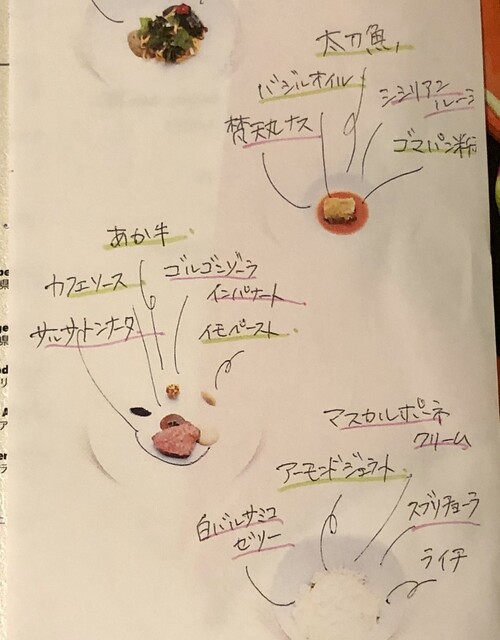 太刀魚
バジルオイル
シシリアン
ルーラ
梵天丸ナス
ゴマパン粉
あか牛
ゴルゴンゾーラ
インパナート
カフェソース
サルサトンナータ
イモペースト
マスカルポーネ
クリーム
アーモンドジェラート
スブリチョーラ
白バルサミコ
ゼリー
ライチ